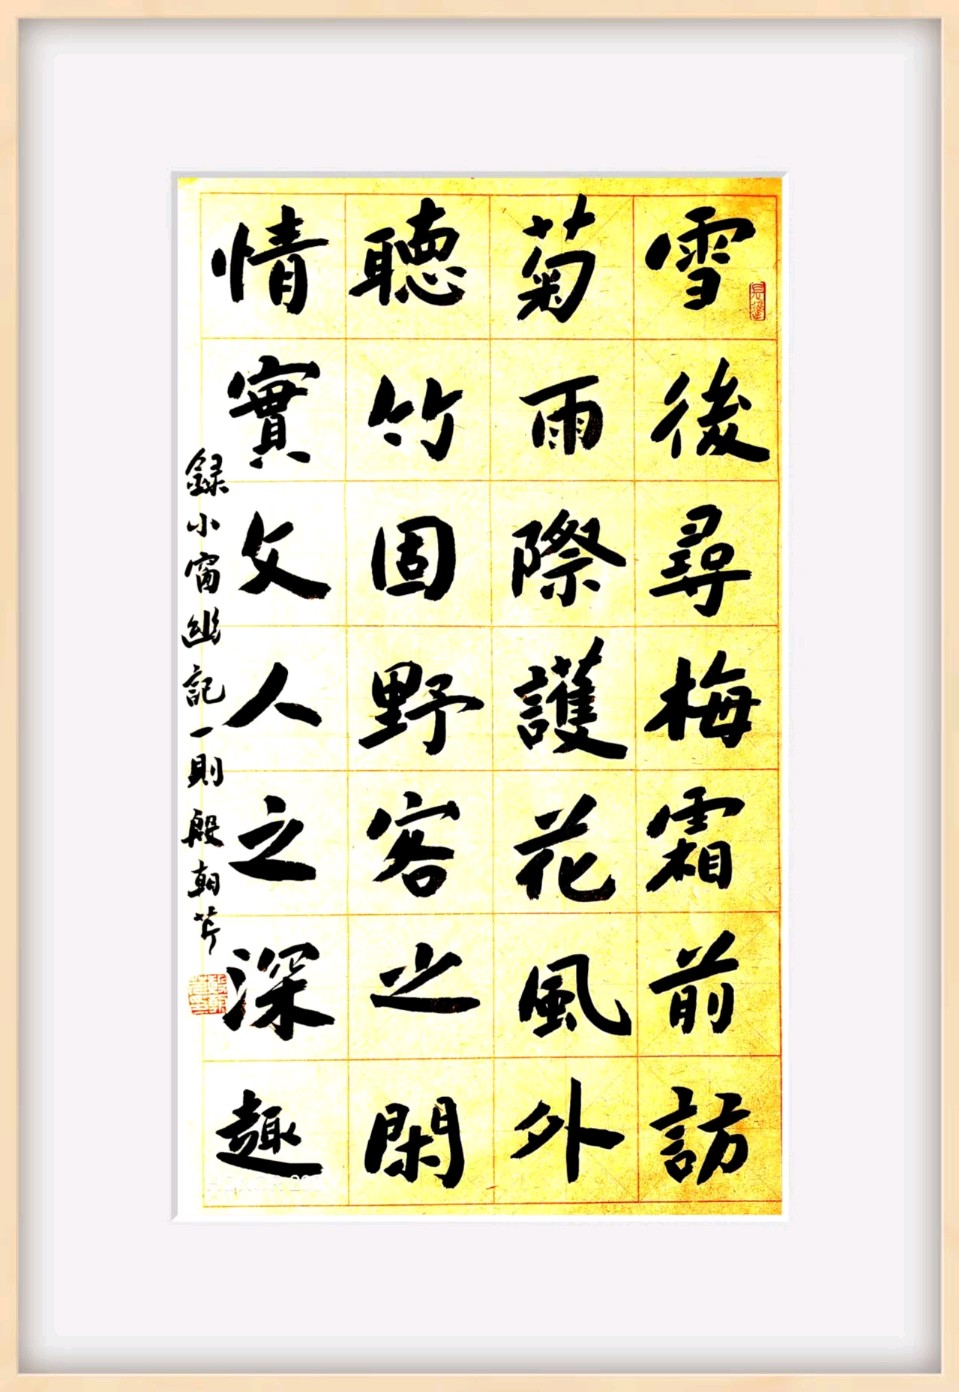 雪後尋梅霜前訪
菊雨際護花風外
聽竹固野客之閑
情實文人之深趣
録小窗幽記一則殷朝芹